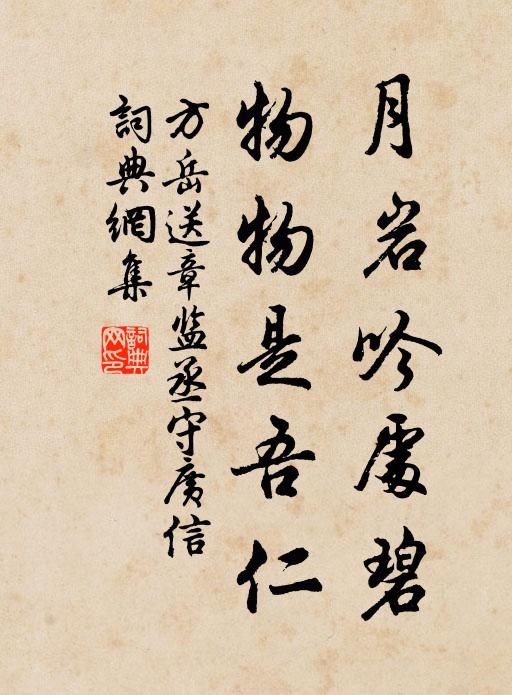 月岩吟處碧
物物是吾仁
方岳送章监丞守廣信
詞典網集
詞典网印